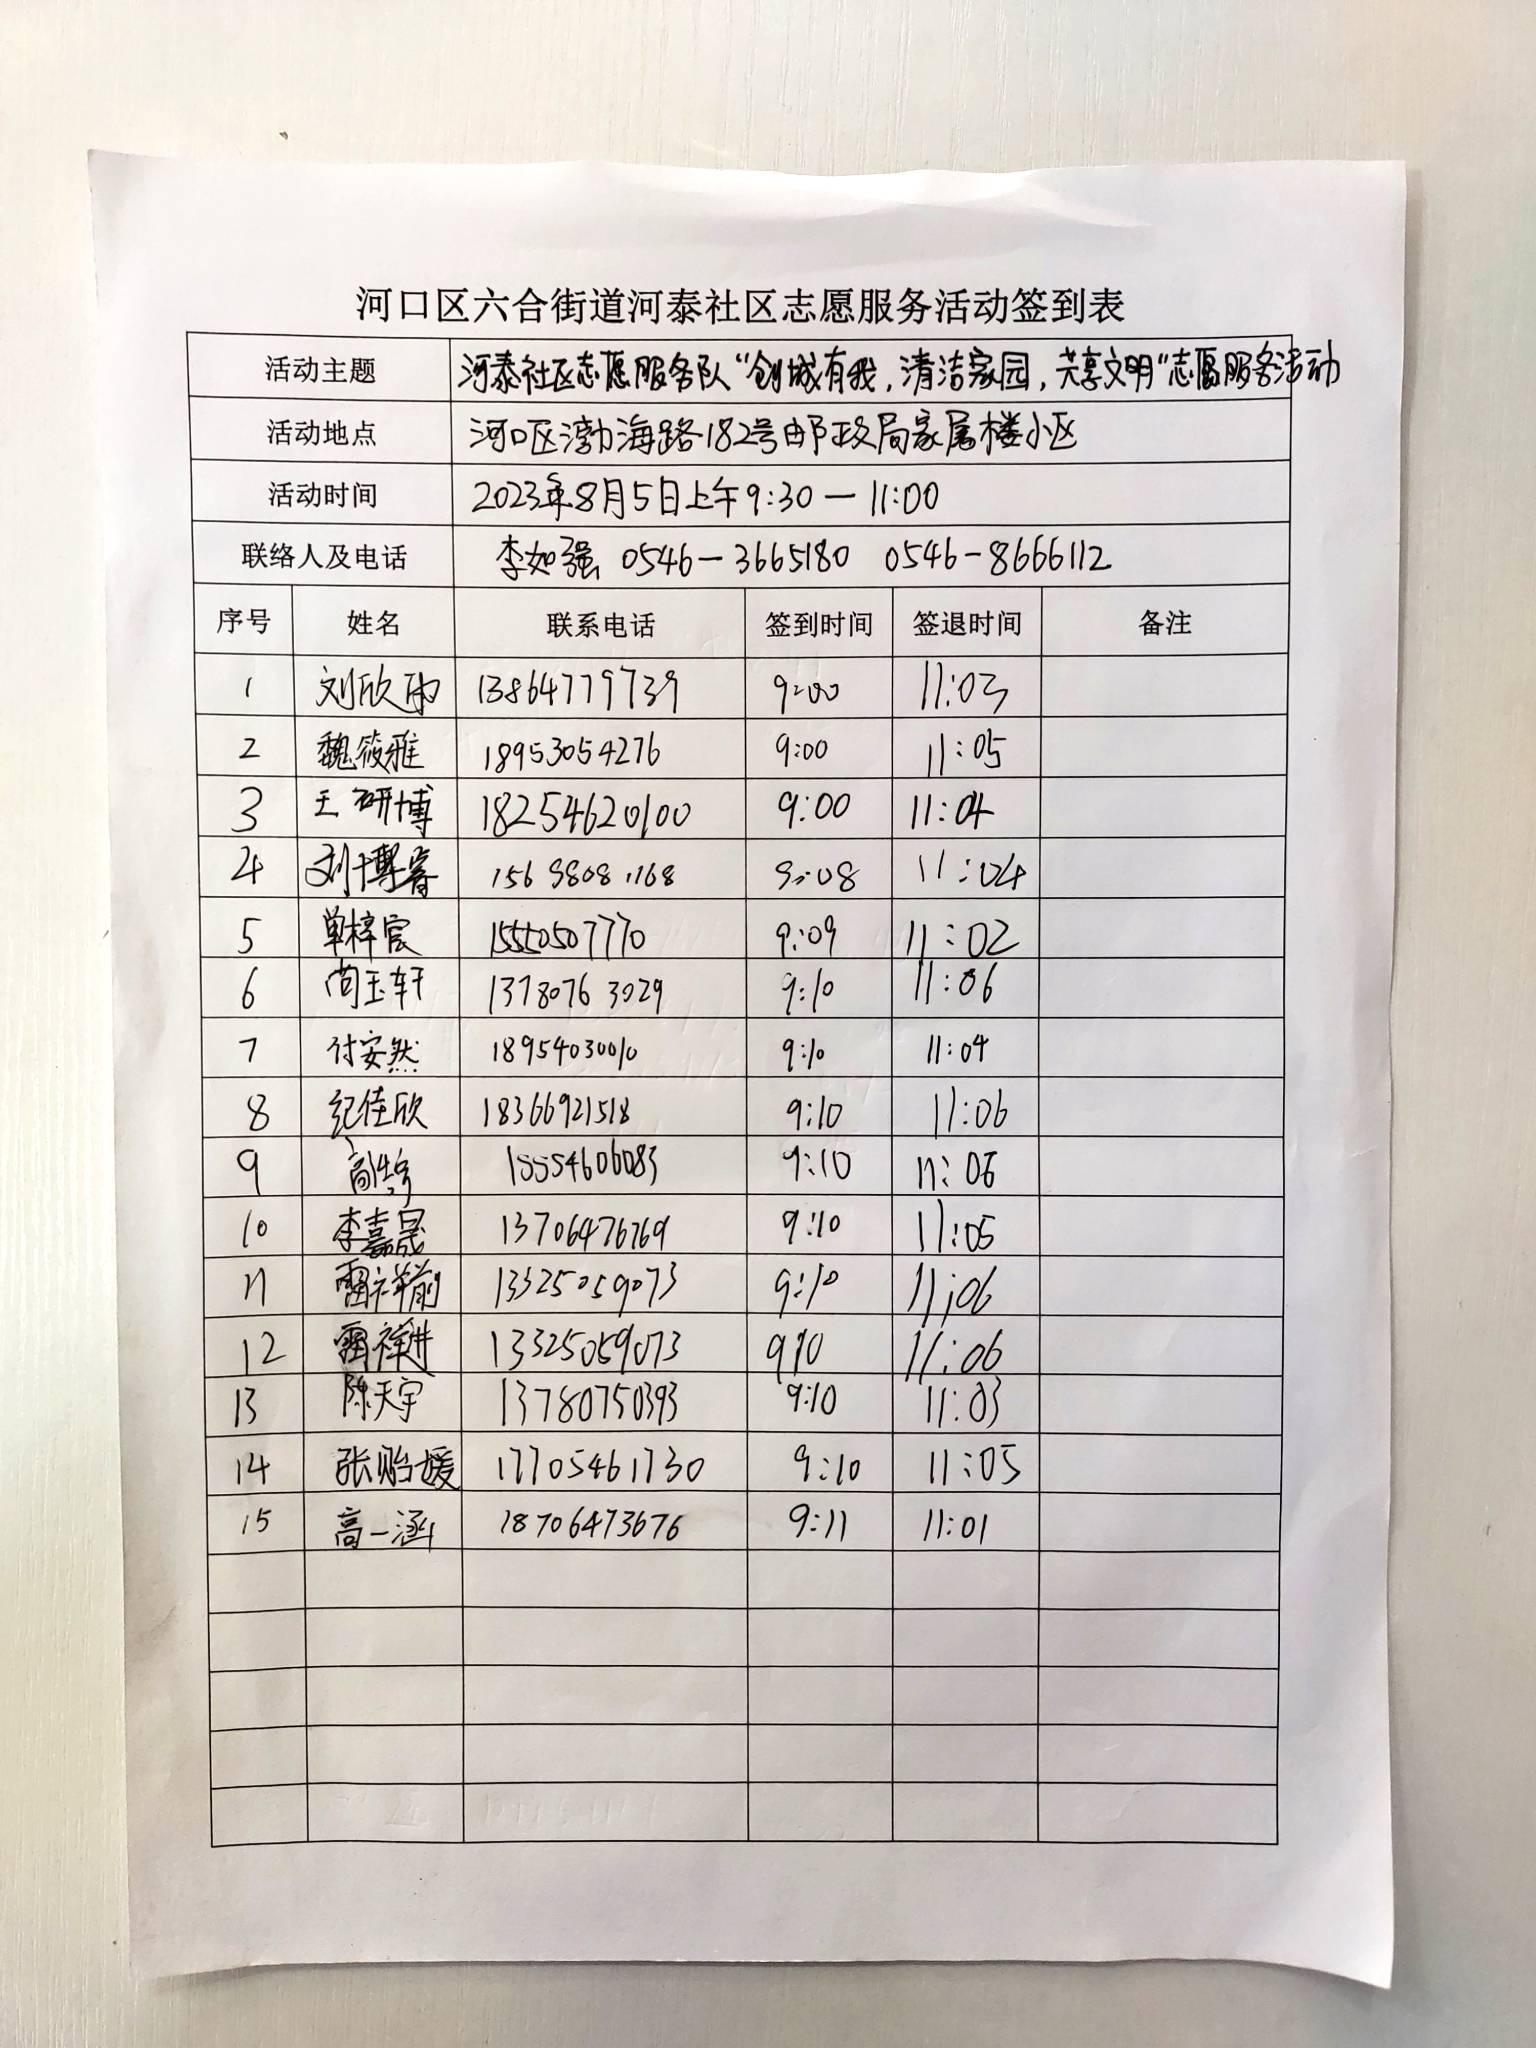 河口区六合街道河泰社区志愿服务活动签到表
活动主题 河泰社区志愿服务队“创城有我,清洁家园,共享文明”志愿服务活动
活动地点 河口区渤海路182号邮政局家属楼小区
活动时间 2023年8月5日上午9:30—11:00
联络人及电话 李如强 0546-3665180 0546-8666112
序号 姓名 联系电话 签到时间 签退时间 备注
1 刘欣雨 13864779739 9:00 11:03
2 魏筱雅 18953054276 9:00 11:05
3 王研博 18254620100 9:00 11:04
4 刘博睿 9:08 11:04
5 单梓宸 15550507770 9:09 11:02
6 尚玉轩 1378076 3029 9:10 11:06
7 付安然 18954030010 9:10 11:04
8 纪佳欣 18366921518 9:10 11:06
9 15554606083 9:10 11:06
10 李嘉晟 13706476769 9:10 11:05
11 雷祥前 13325059073 9:10 11:06
12 雷祥进 13325059073 910 11:06
13 陈天宇 13780750393 9:10 11:03
14 张贻媛 17705461730 9:10 11:05
15 高一涵 18706473676 9:11 11:01